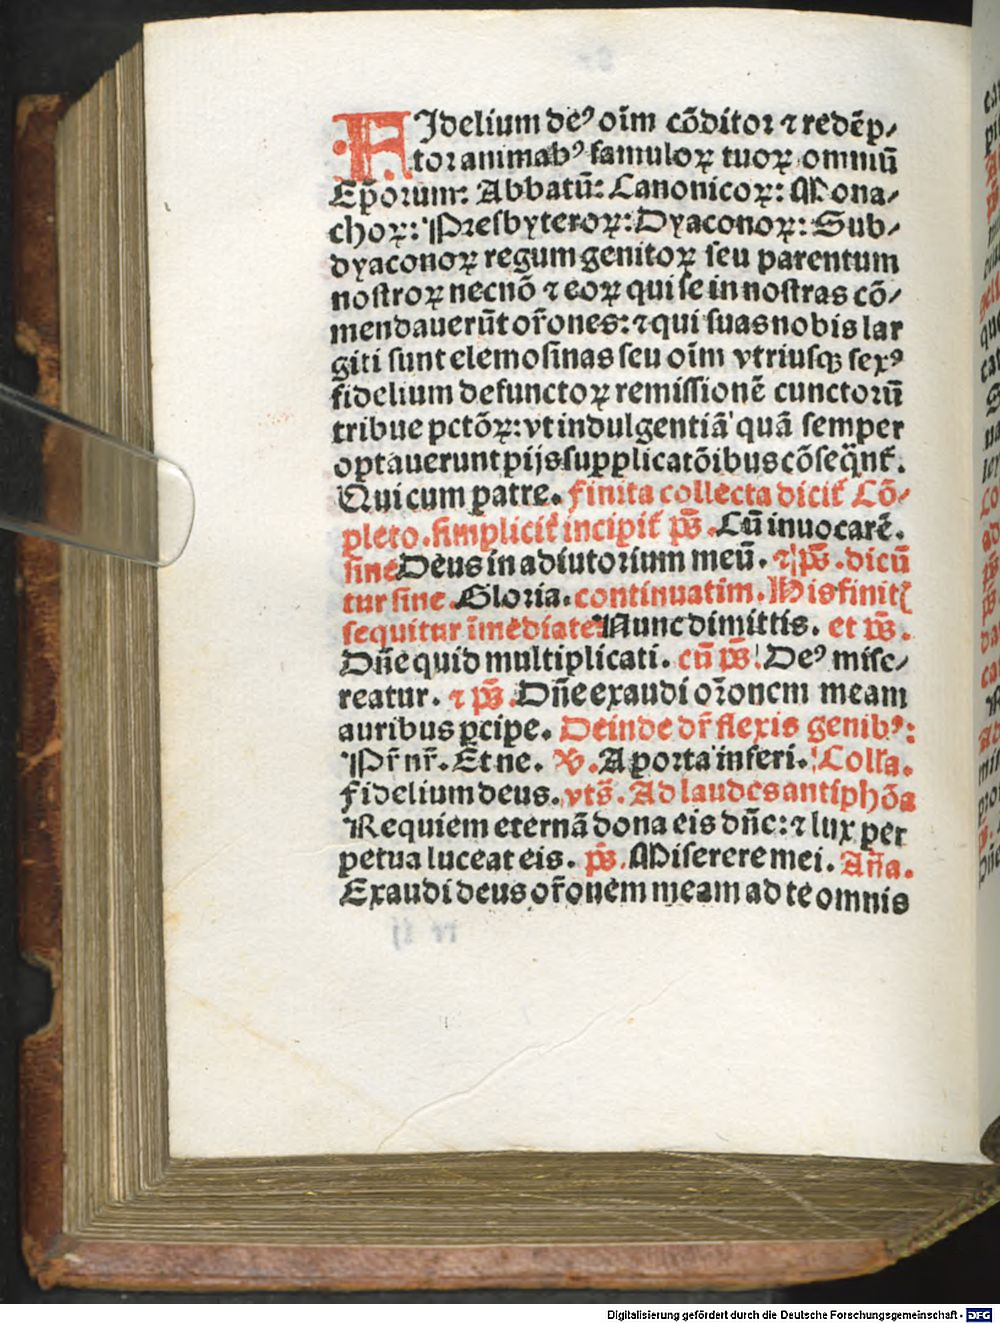 FIdelium deꝰ oīm cōditor ⁊ redēp⸗
tor animabꝰ famulorꝝ tuorꝝ omniū
Ep̄orum: Abbatū: Canonicoꝝ: Mona⸗
choꝝ: Presbyteroꝝ: Dyaconoꝝ: Sub⸗
dyaconoꝝ regum genitoꝝ seu parentum
nostroꝝ necnō ⁊ eoꝝ qui se in nostras cō⸗
mendauerūt or̄ones: ⁊ qui suas nobis lar
giti sunt elemosinas seu oīm vtriusqꝫ sexꝰ
fidelium defunctoꝝ remissionē cunctorū
tribue pctōꝝ: vt indulgentiā quā semper
optauerunt pijs supplicatōibus cōseq̄nt̄.
Qui cum patre. finita collecta dicit̄ Cō⸗
pleto. simplicit̄ incipit̄ ps̄. Cū inuocarē.
sine Deus in adiutorium meū. ⁊ ps̄. dicū
tur sine. Gloria. continuatim. His finit
sequitur īmediate Nunc dimittis. et ps̄.
Dn̄e quid multiplicati. cū ps̄ Deꝰ mise⸗
reatur. ⁊ ps̄. Dn̄e exaudi or̄onem meam
auribus ꝑcipe. Deinde dr̄ flexis genibꝰ:
Pr̄ nr̄. Et ne. ℣. A porta inferi. Coll̄a.
fidelium deus. vts̄. Ad laudes antiphōa
Requiem eternā dona eis dn̄e: ⁊ lux per
petua luceat eis. ps̄. Miserere mei. An̄a.
Exaudi deus or̄onem meam ad te omnis
Digitalisierung gefördert durch die Deutsche Forschungsgemeinschaft - DFG